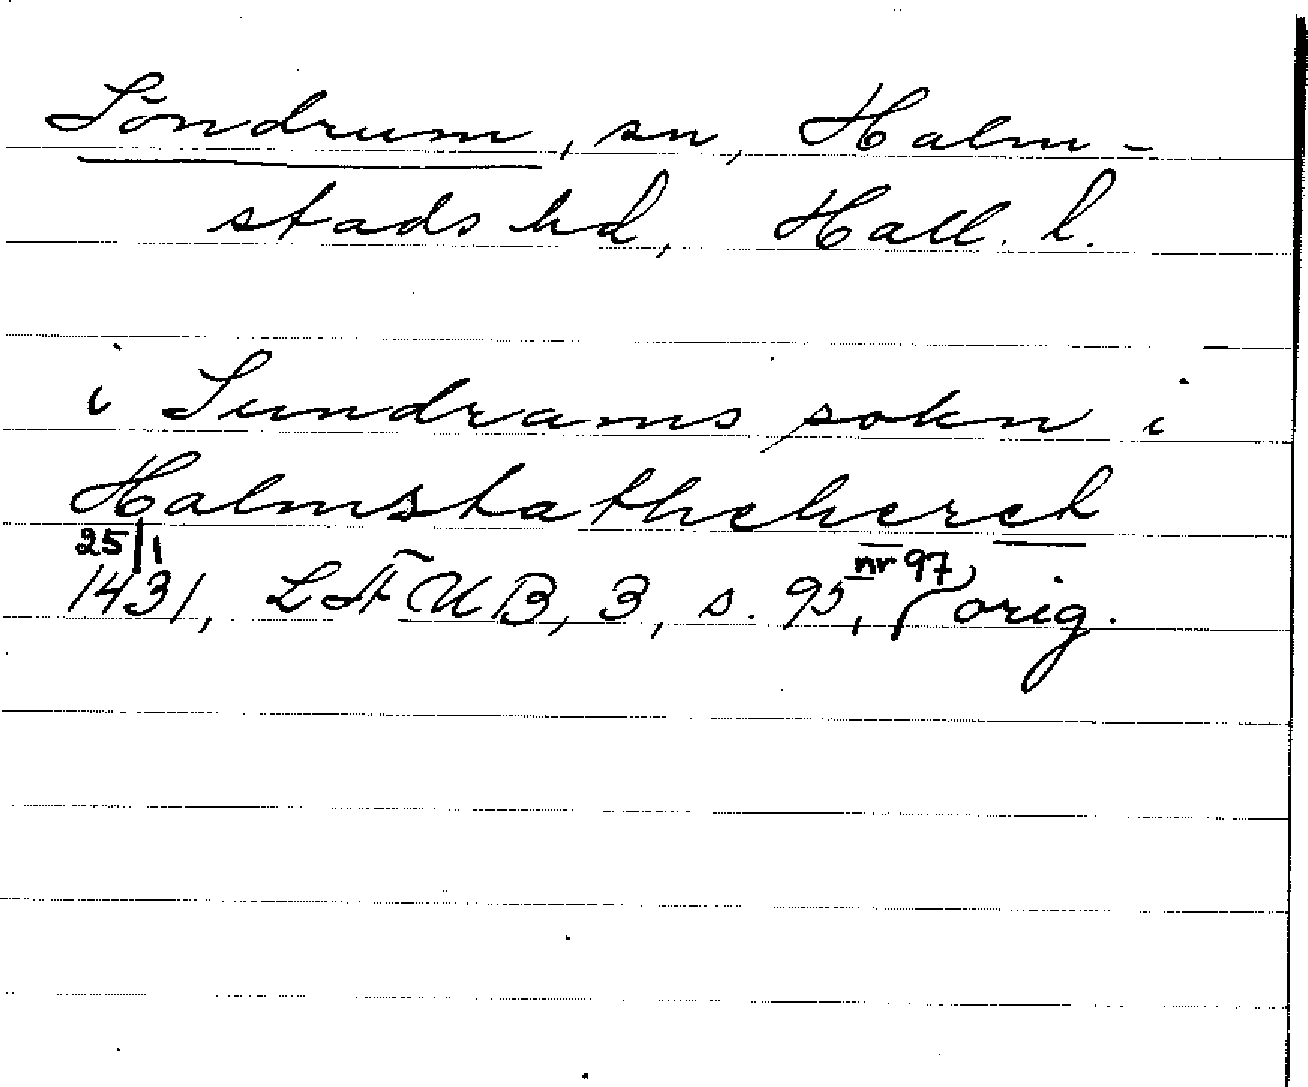 Söndrum, sn, Halm-
stads hd, Hall. l.
i Sundrams sokn i
Halmstatheheret
25/1 nr 97,
1431, LÄUB, 3, s. 95, orig.